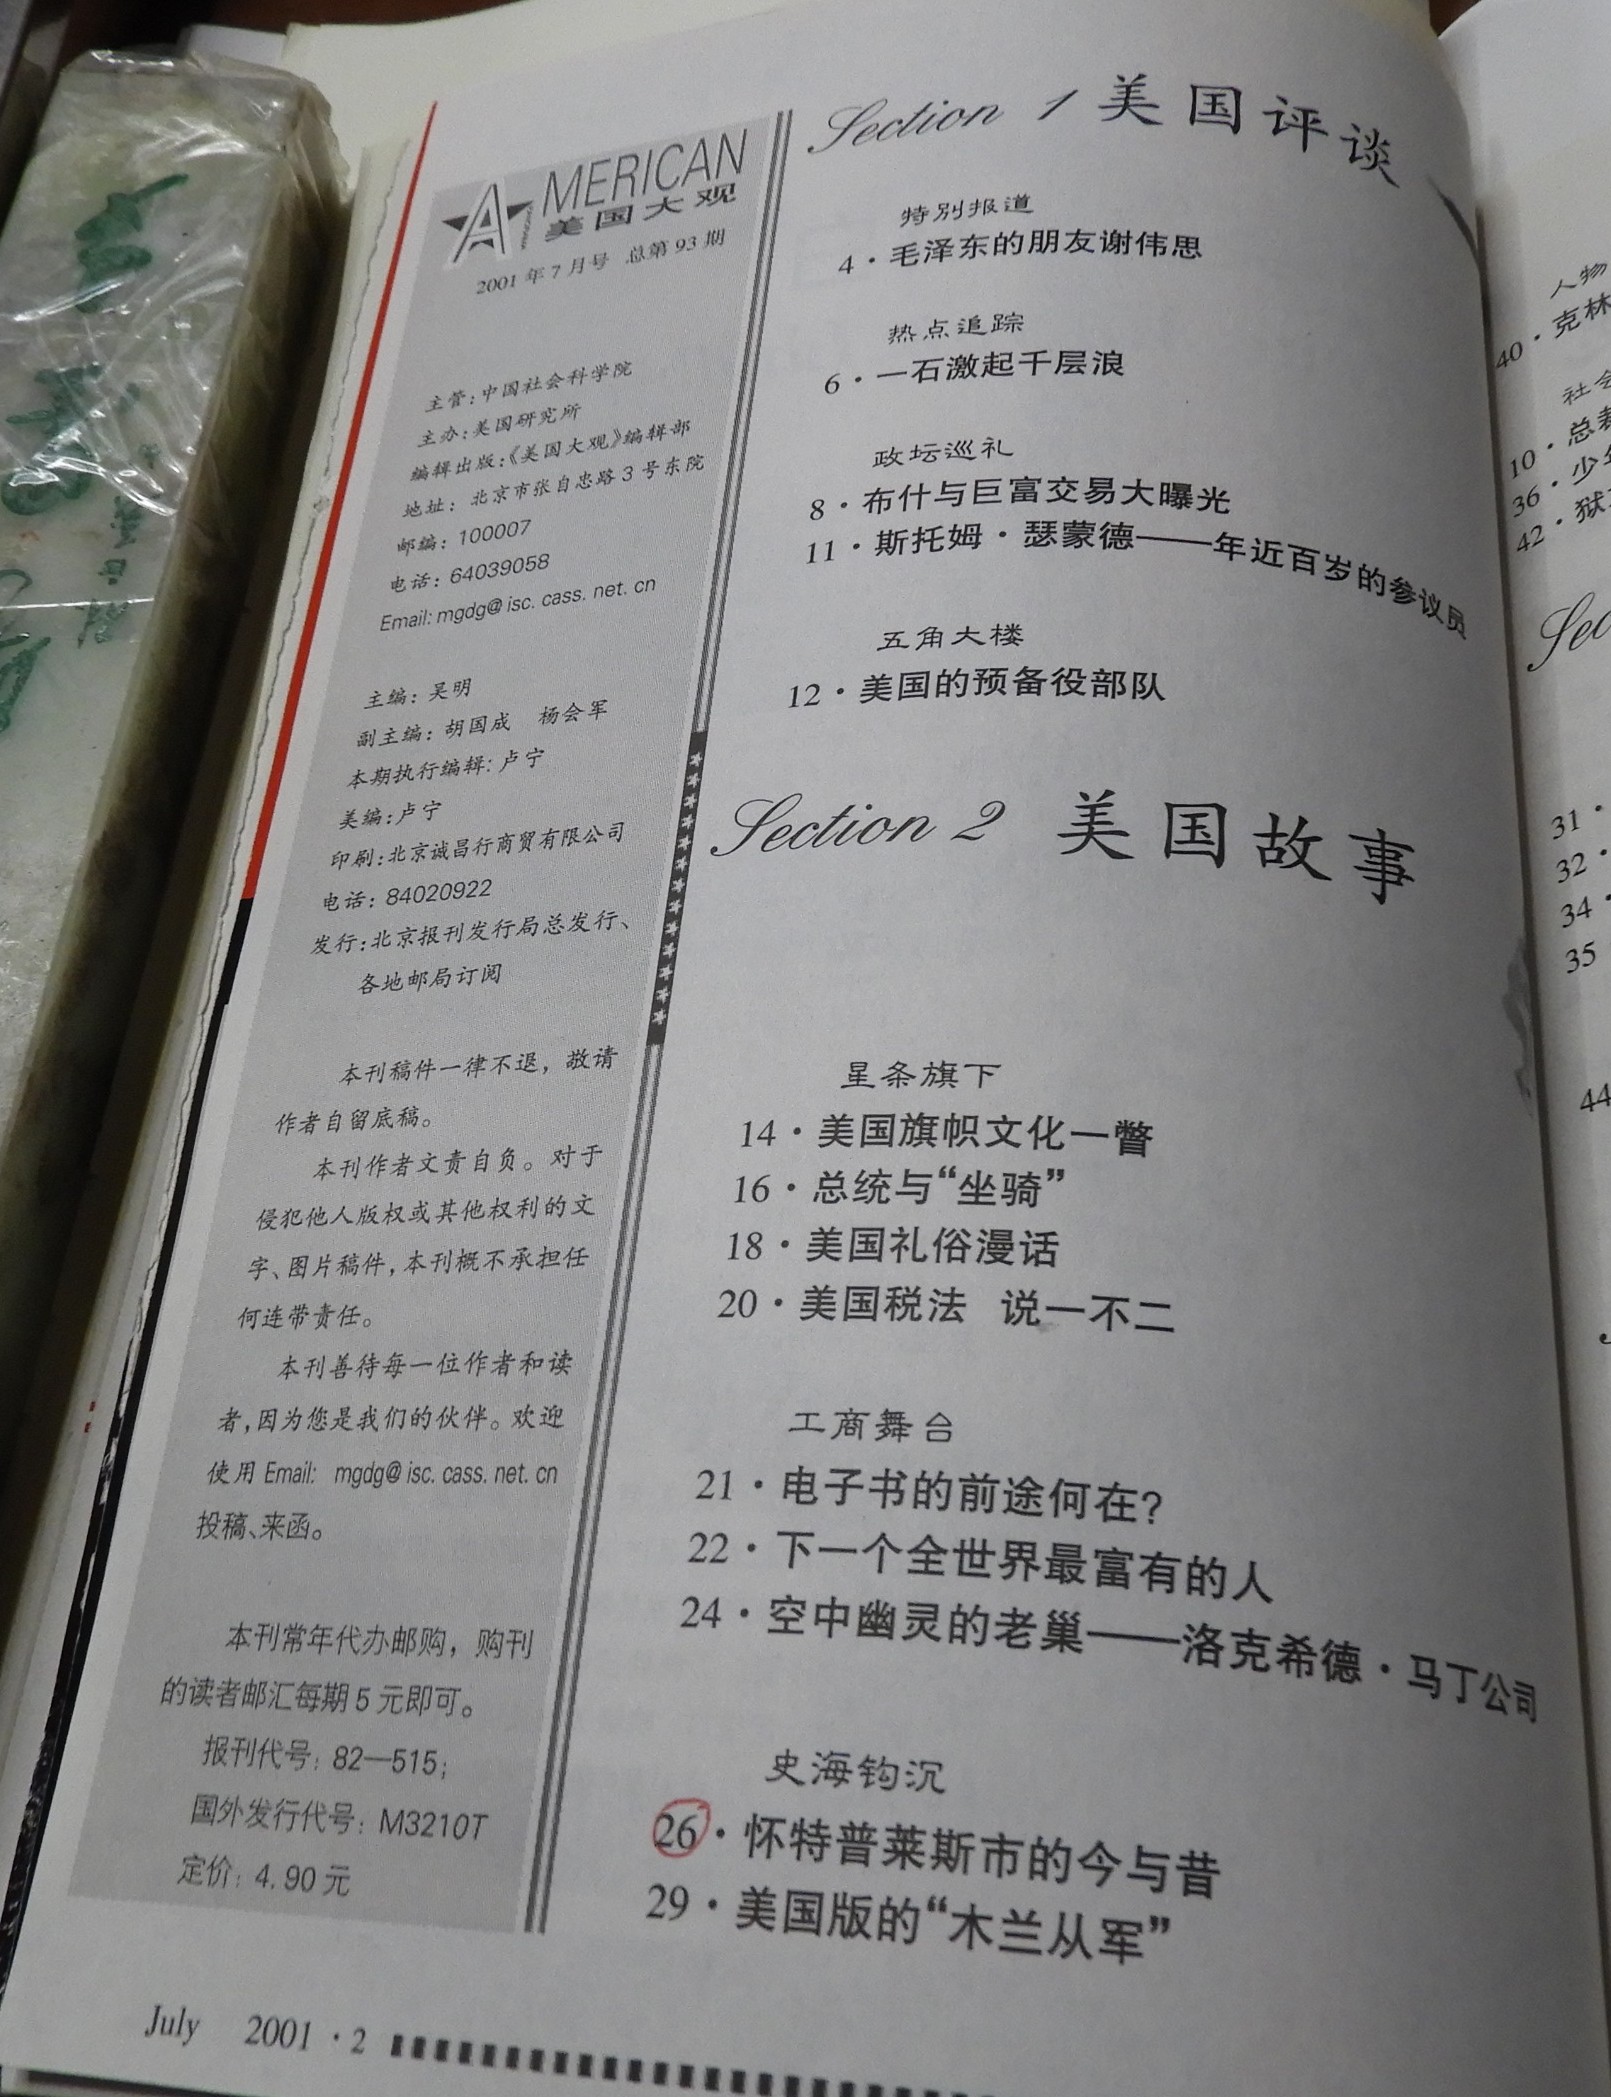 AMERICAN
美国大观
2001年7月号 总第93期
主管:中国社会科学院
主办:美国研究所
编辑出版:《美国大观》编辑部
地址: 北京市张自忠路3号东院
邮编: 100007
电话: 64039058
Email: mgdg@isc.cass.net.cn
主编: 吴明
副主编: 胡国成 杨会军
本期执行编辑: 卢宁
美编:卢宁
印刷:北京诚昌行商贸有限公司
电话: 84020922
发行:北京报刊发行局总发行、
各地邮局订阅
本刊稿件一律不退,敬请
作者自留底稿。
本刊作者文责自负。对于
侵犯他人版权或其他权利的文
字、图片稿件,本刊概不承担任
何连带责任。
本刊善待每一位作者和读
者,因为您是我们的伙伴。欢迎
使用Email: mgdg@isc.cass.net.cn
投稿、来函。
本刊常年代办邮购,购刊
的读者邮汇每期5元即可。
报刊代号: 82—515;
国外发行代号: M3210T
定价: 4.90元
Section 1 美国评谈
特别报道
4·毛泽东的朋友谢伟思
热点追踪
6·一石激起千层浪
政坛巡礼
8·布什与巨富交易大曝光
11·斯托姆·瑟蒙德——年近百岁的参议员
五角大楼
12·美国的预备役部队
Section 2 美国故事
星条旗下
14·美国旗帜文化一瞥
16·总统与“坐骑”
18·美国礼俗漫话
20·美国税法 说一不二
工商舞台
21·电子书的前途何在?
22·下一个全世界最富有的人
24·空中幽灵的老巢——洛克希德·马丁公司
史海钩沉
26·怀特普莱斯市的今与昔
29·美国版的“木兰从军”
July 2001·2
人物
40·克林
社会
10·总裁
36·少年
42·狱
Sec
31·
32·
34·
35
44